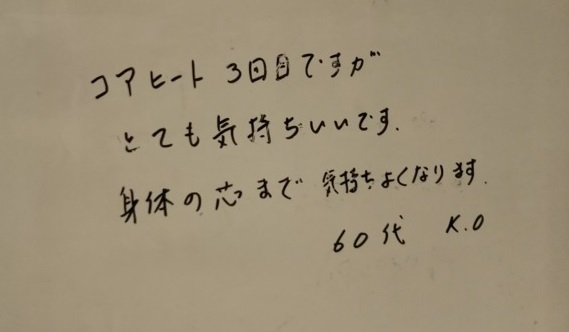 コアヒート 3回目ですが
とても気持ちいいです.
身体の芯まで 気持ちよくなります.
60代 K.O